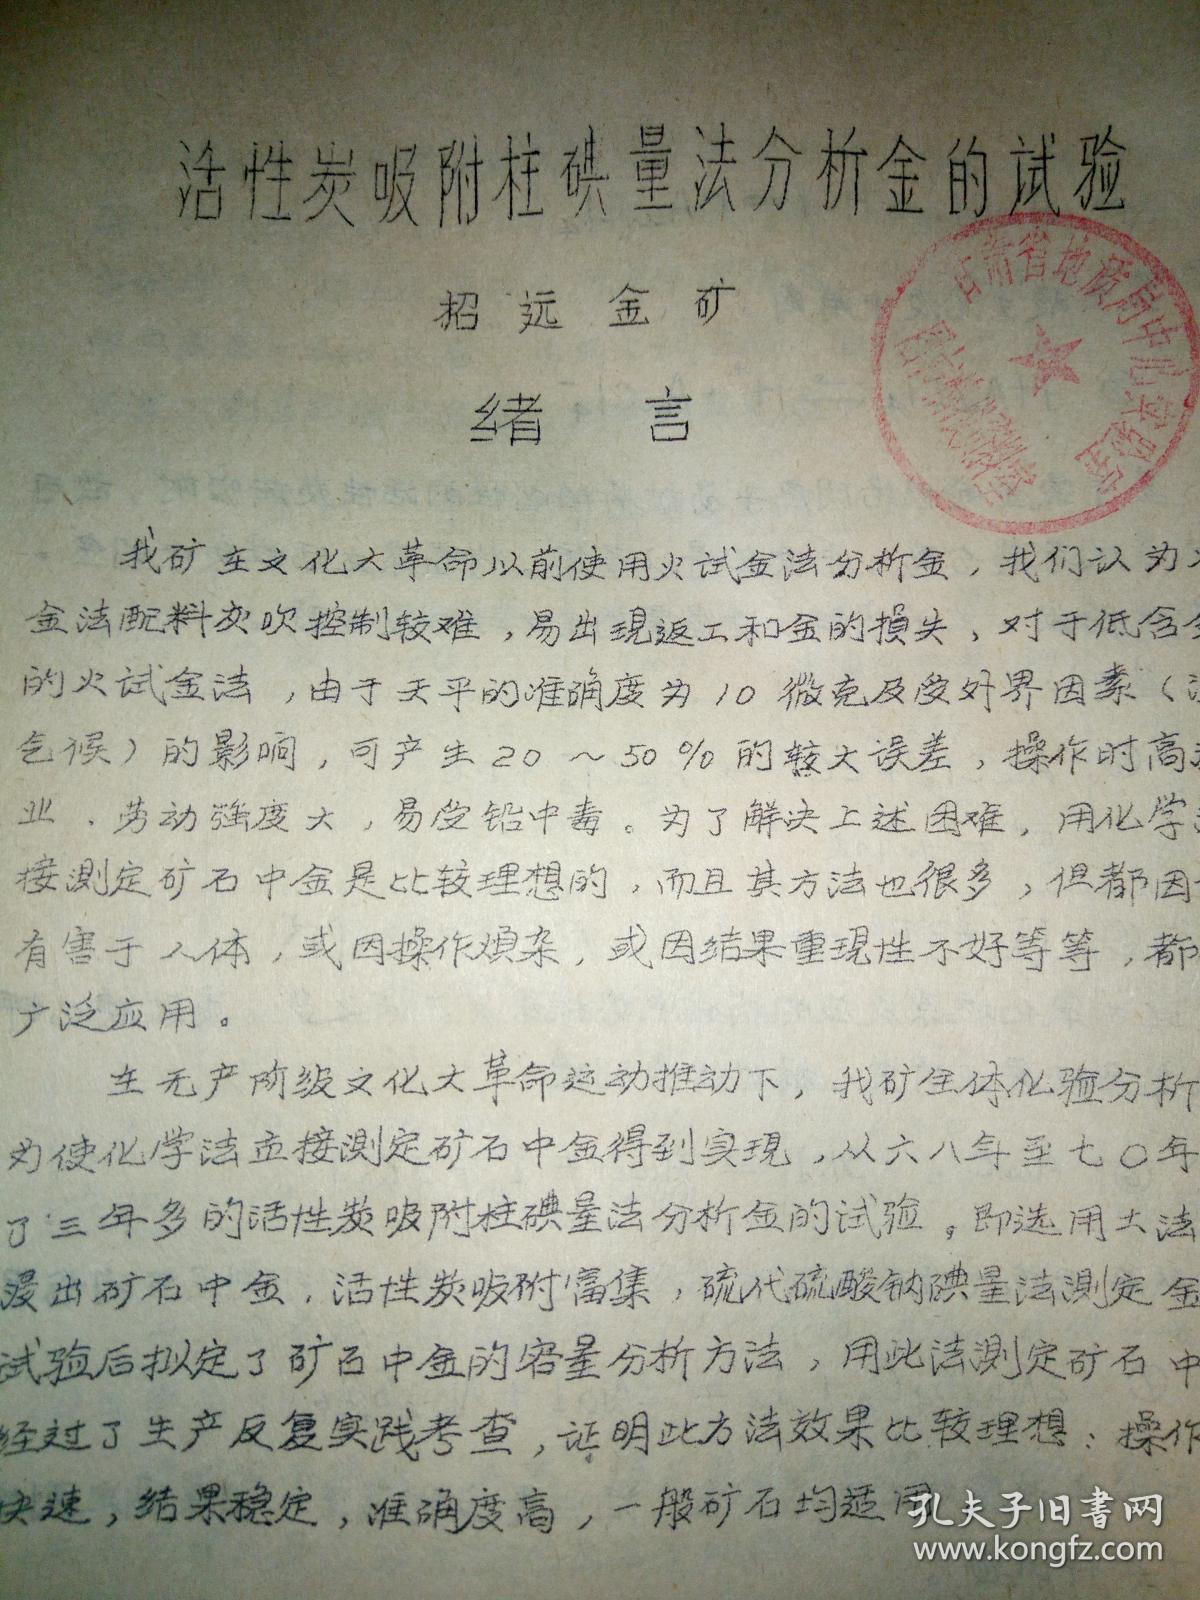 活性炭吸附柱碘量法分析金的试验
招远金矿
绪言
甘肃省地质局中心实验室
我矿在文化大革命以前使用火试金法分析金，我们认为火
金法配料灰吹控制较难，易出現返工和金的損失，对于低含金
的火试金法，由于天平的准确度为10微克及受外界因素（温
气候）的影响，可产生20～50%的较大误差，操作时高温
业、劳动强度大，易受铅中毒。为了解决上述困难，用化学法
接測定矿石中金是比较理想的，而且其方法也很多，但都因
有害于人体，或因操作煩杂，或因结果重現性不好等等，都
广泛应用。
在无产阶级文化大革命运动推动下，我矿全体化验分析
为使化学法直接測定矿石中金得到实現，从六八年至七〇年
了三年多的活性炭吸附柱碘量法分析金的试验。即选用土法
浸出矿石中金，活性炭吸附富集，硫代硫酸钠碘量法測定金
试验后拟定了矿石中金的容量分析方法，用此法測定矿石中
经过了生产反复实践考查，证明此方法效果比较理想：操作
快速，结果稳定，准确度高，一般矿石均适用
孔夫子旧書网
www.kongfz.com